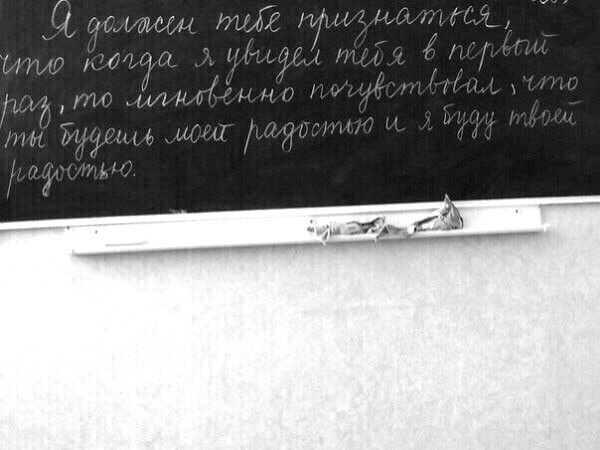 Я должен тебе признаться,
что когда я увидел тебя в первый
раз, то мгновенно почувствовал, что
ты будешь моей радостью и я буду твоей
радостью.